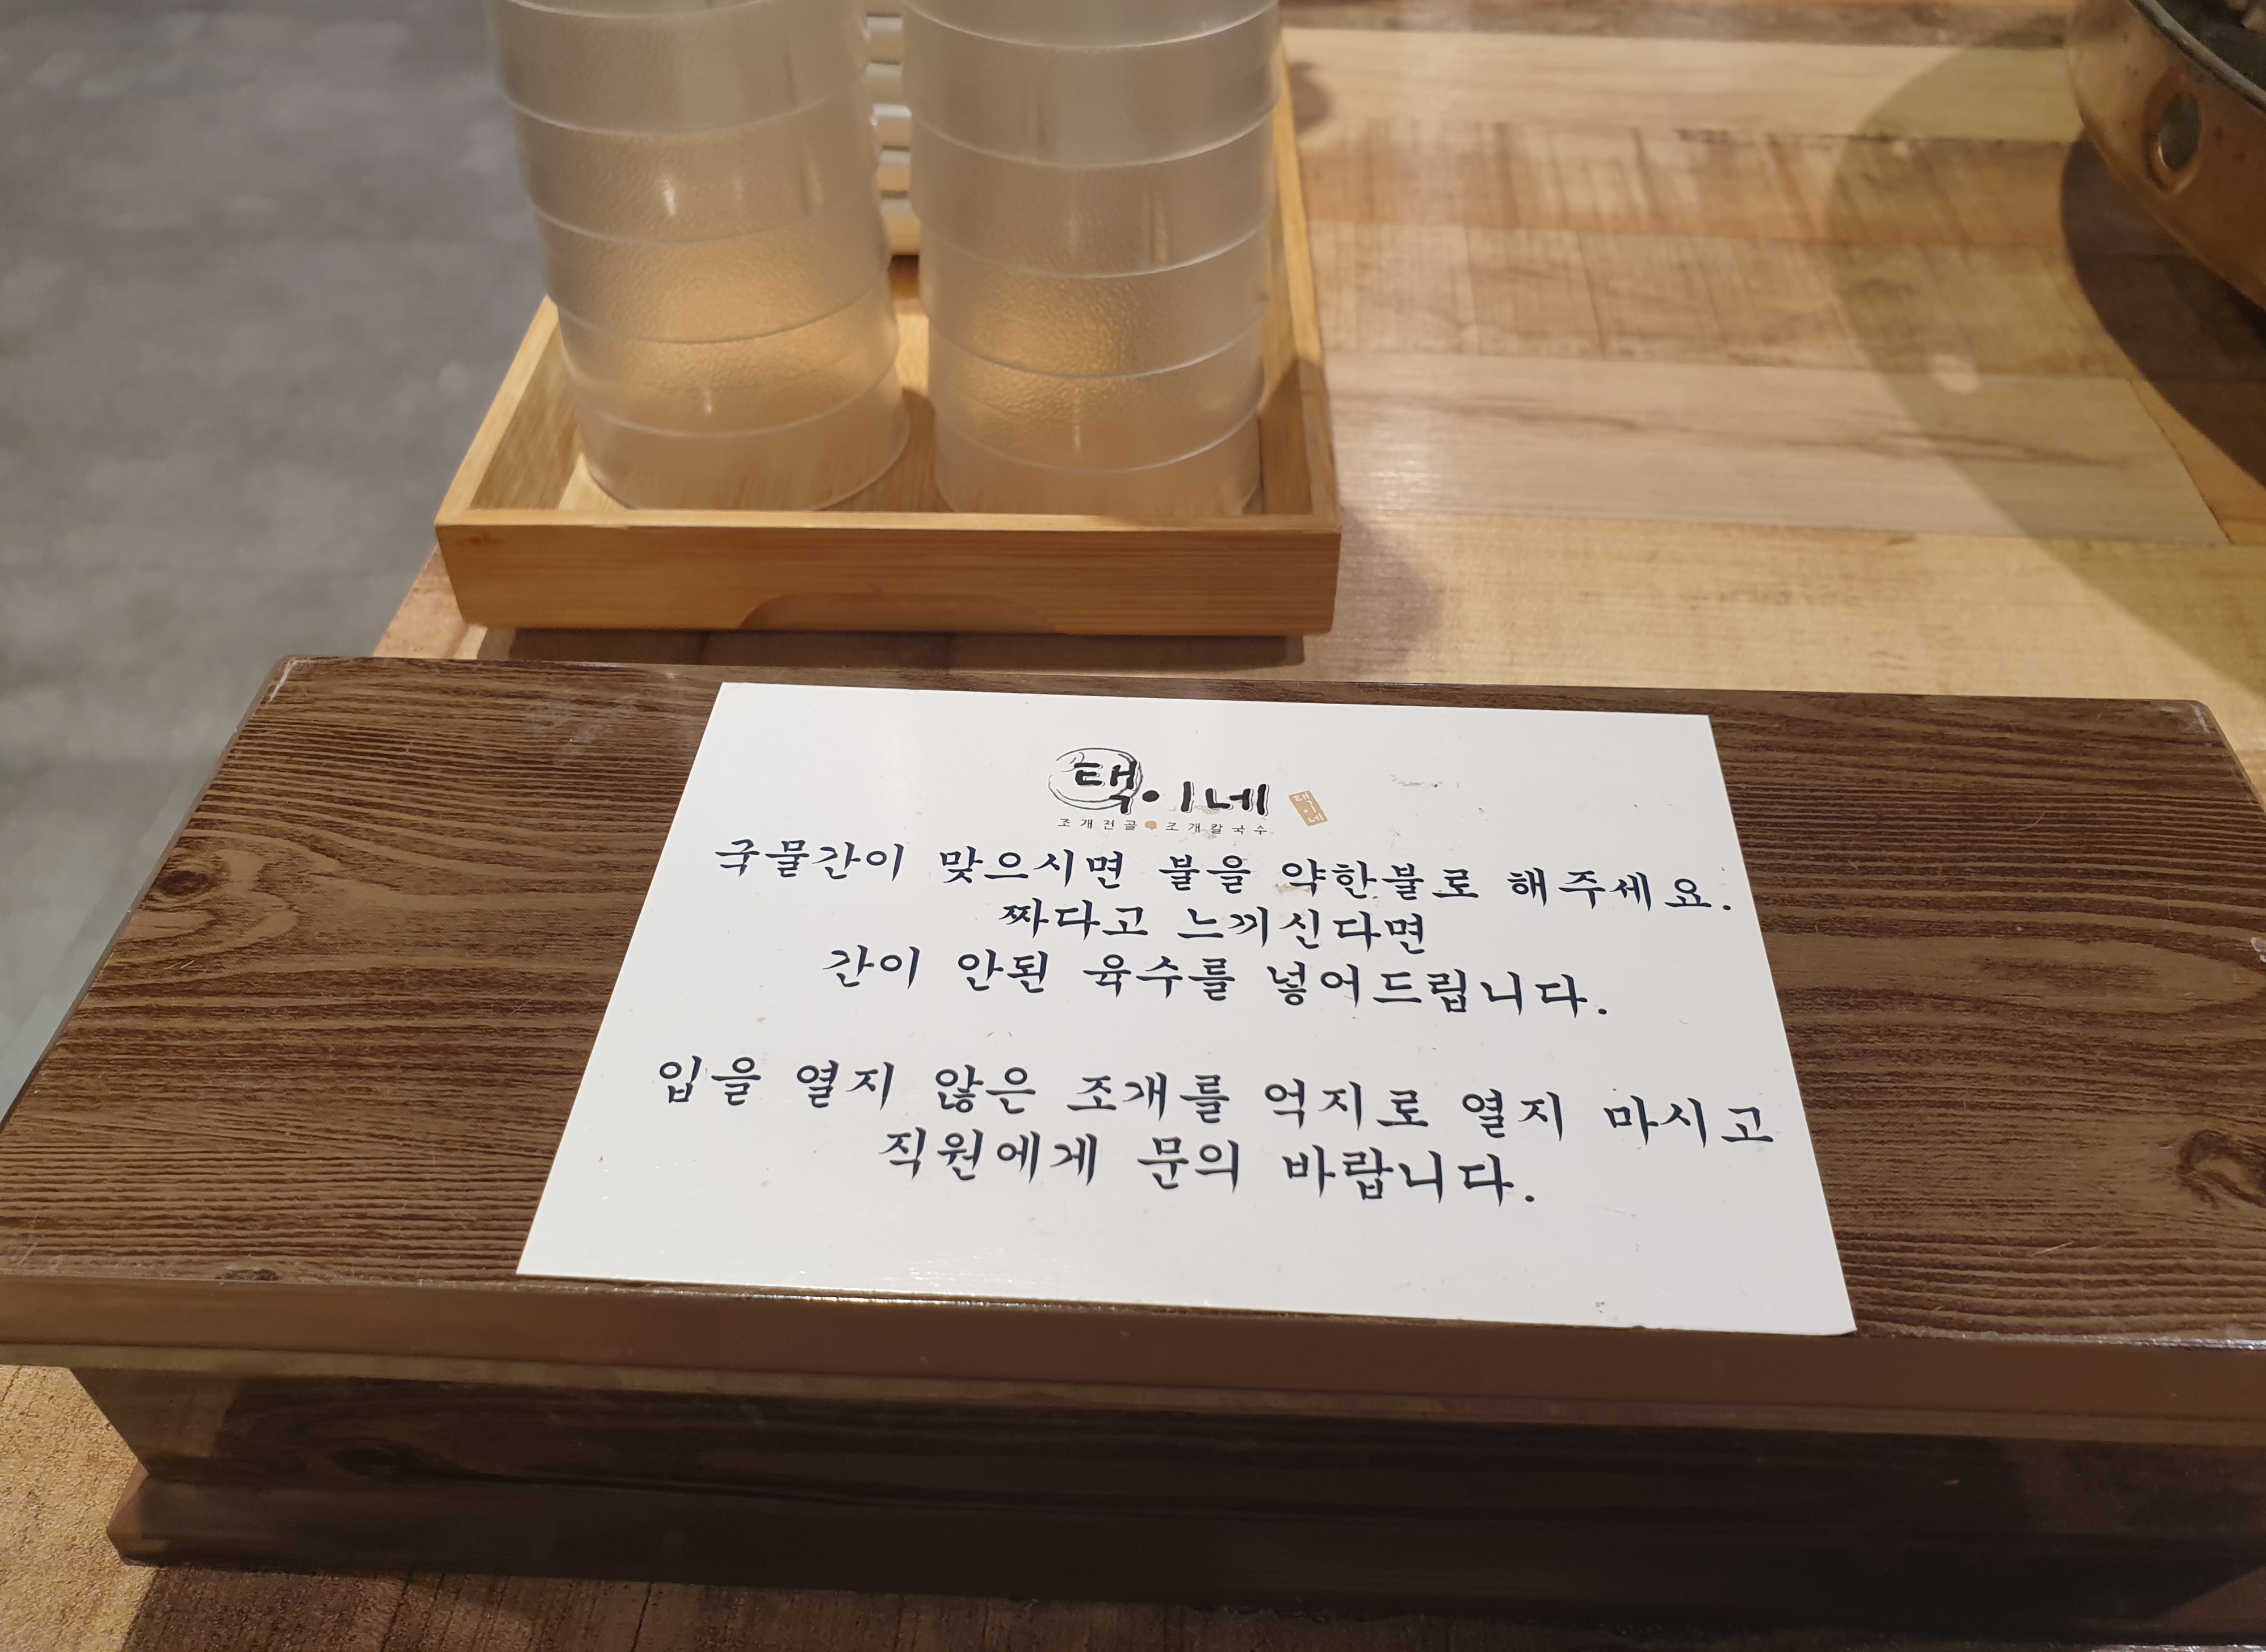 택이네
택이네
조개전골 조개칼국수
국물간이 맞으시면 불을 약한불로 해주세요.
짜다고 느끼신다면
간이 안된 육수를 넣어드립니다.
입을 열지 않은 조개를 억지로 열지 마시고
직원에게 문의 바랍니다.